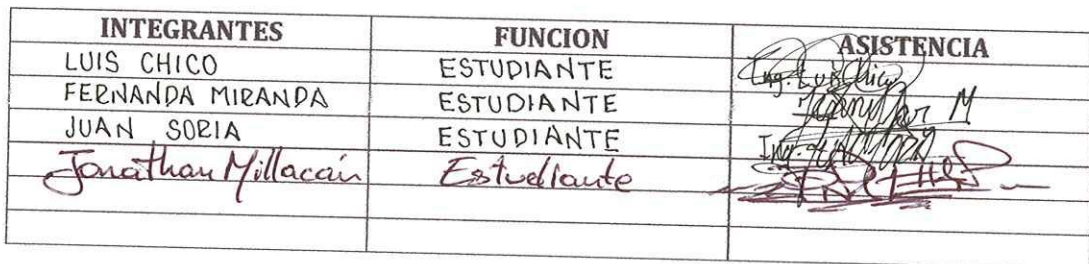 INTEGRANTES FUNCION ASISTENCIA
LUIS CHICO ESTUDIANTE Ing. Luis Chico
FERNANDA MIRANDA ESTUDIANTE
JUAN SORIA ESTUDIANTE Ing.
Jonathan Millacán Estudiante